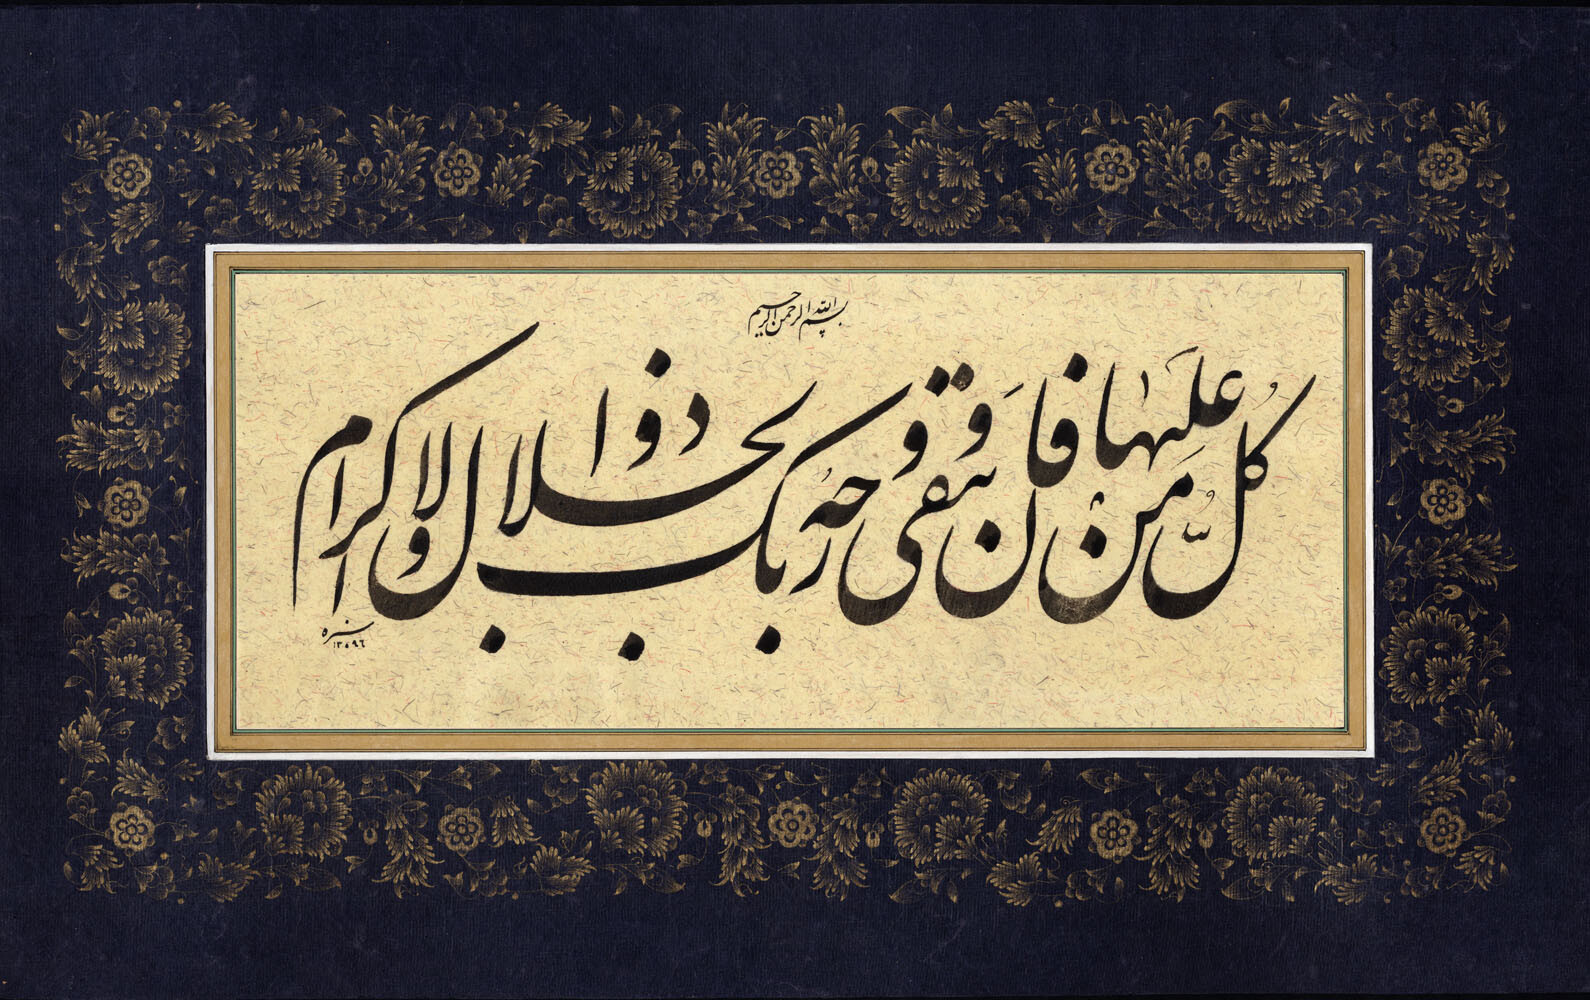 بسم الله الرحمن الرحیم
كُلُّ مَنْ عَلَيها فان وَيَبقى وَجهُ رَبك ذو الجلال والاكرام